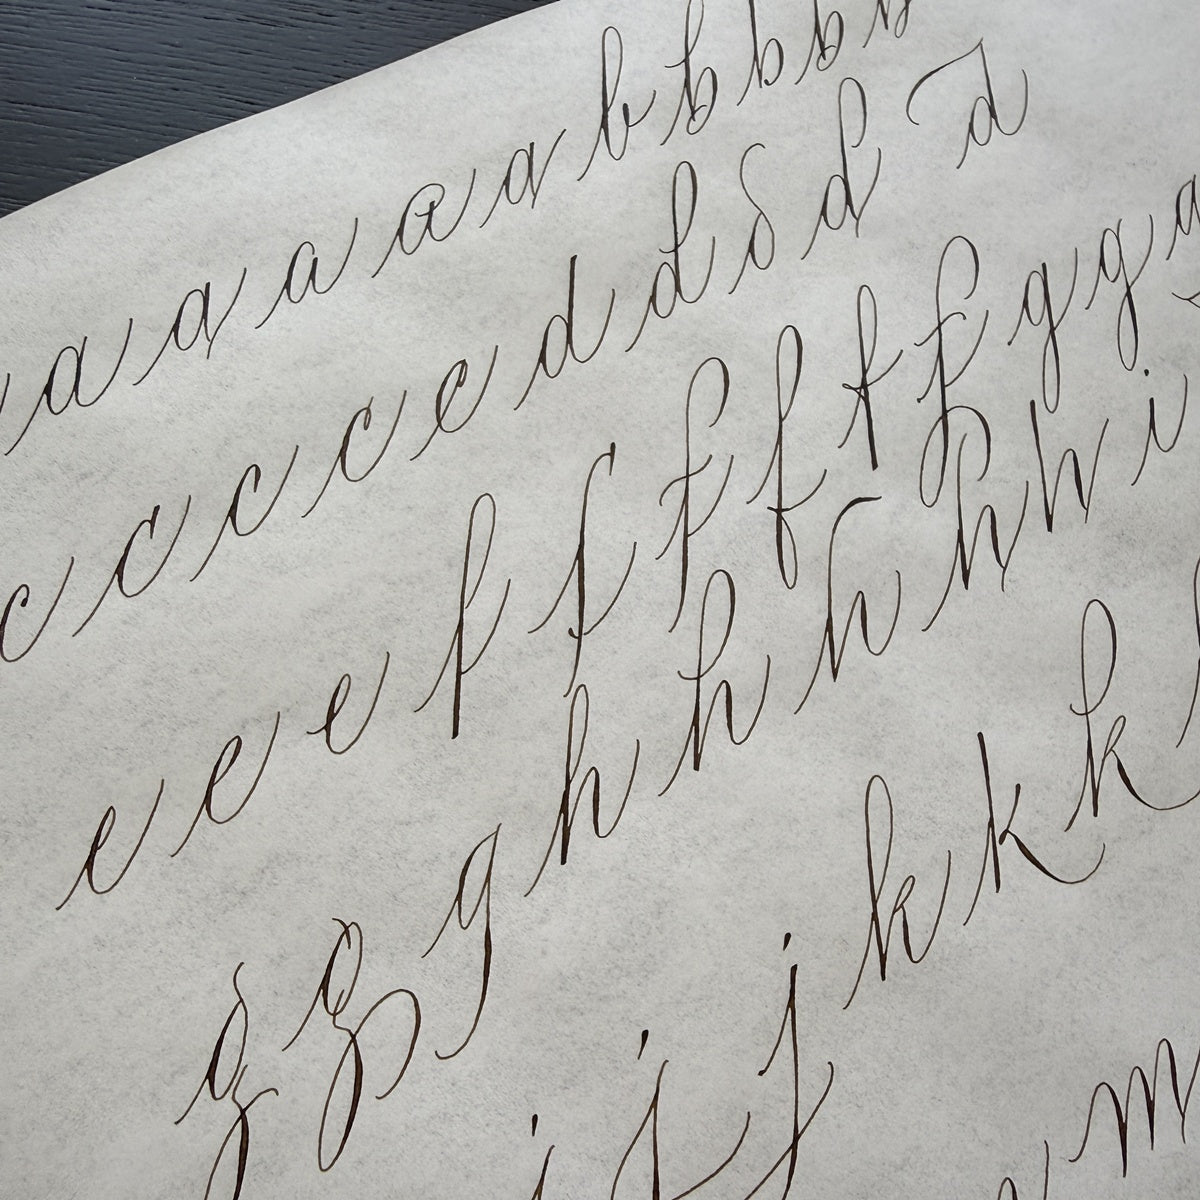 a a a a a b b b b
c c c c c d d d d d
e e e f f f f f f g g g
g g g h h h h h i
j j j k k k
m